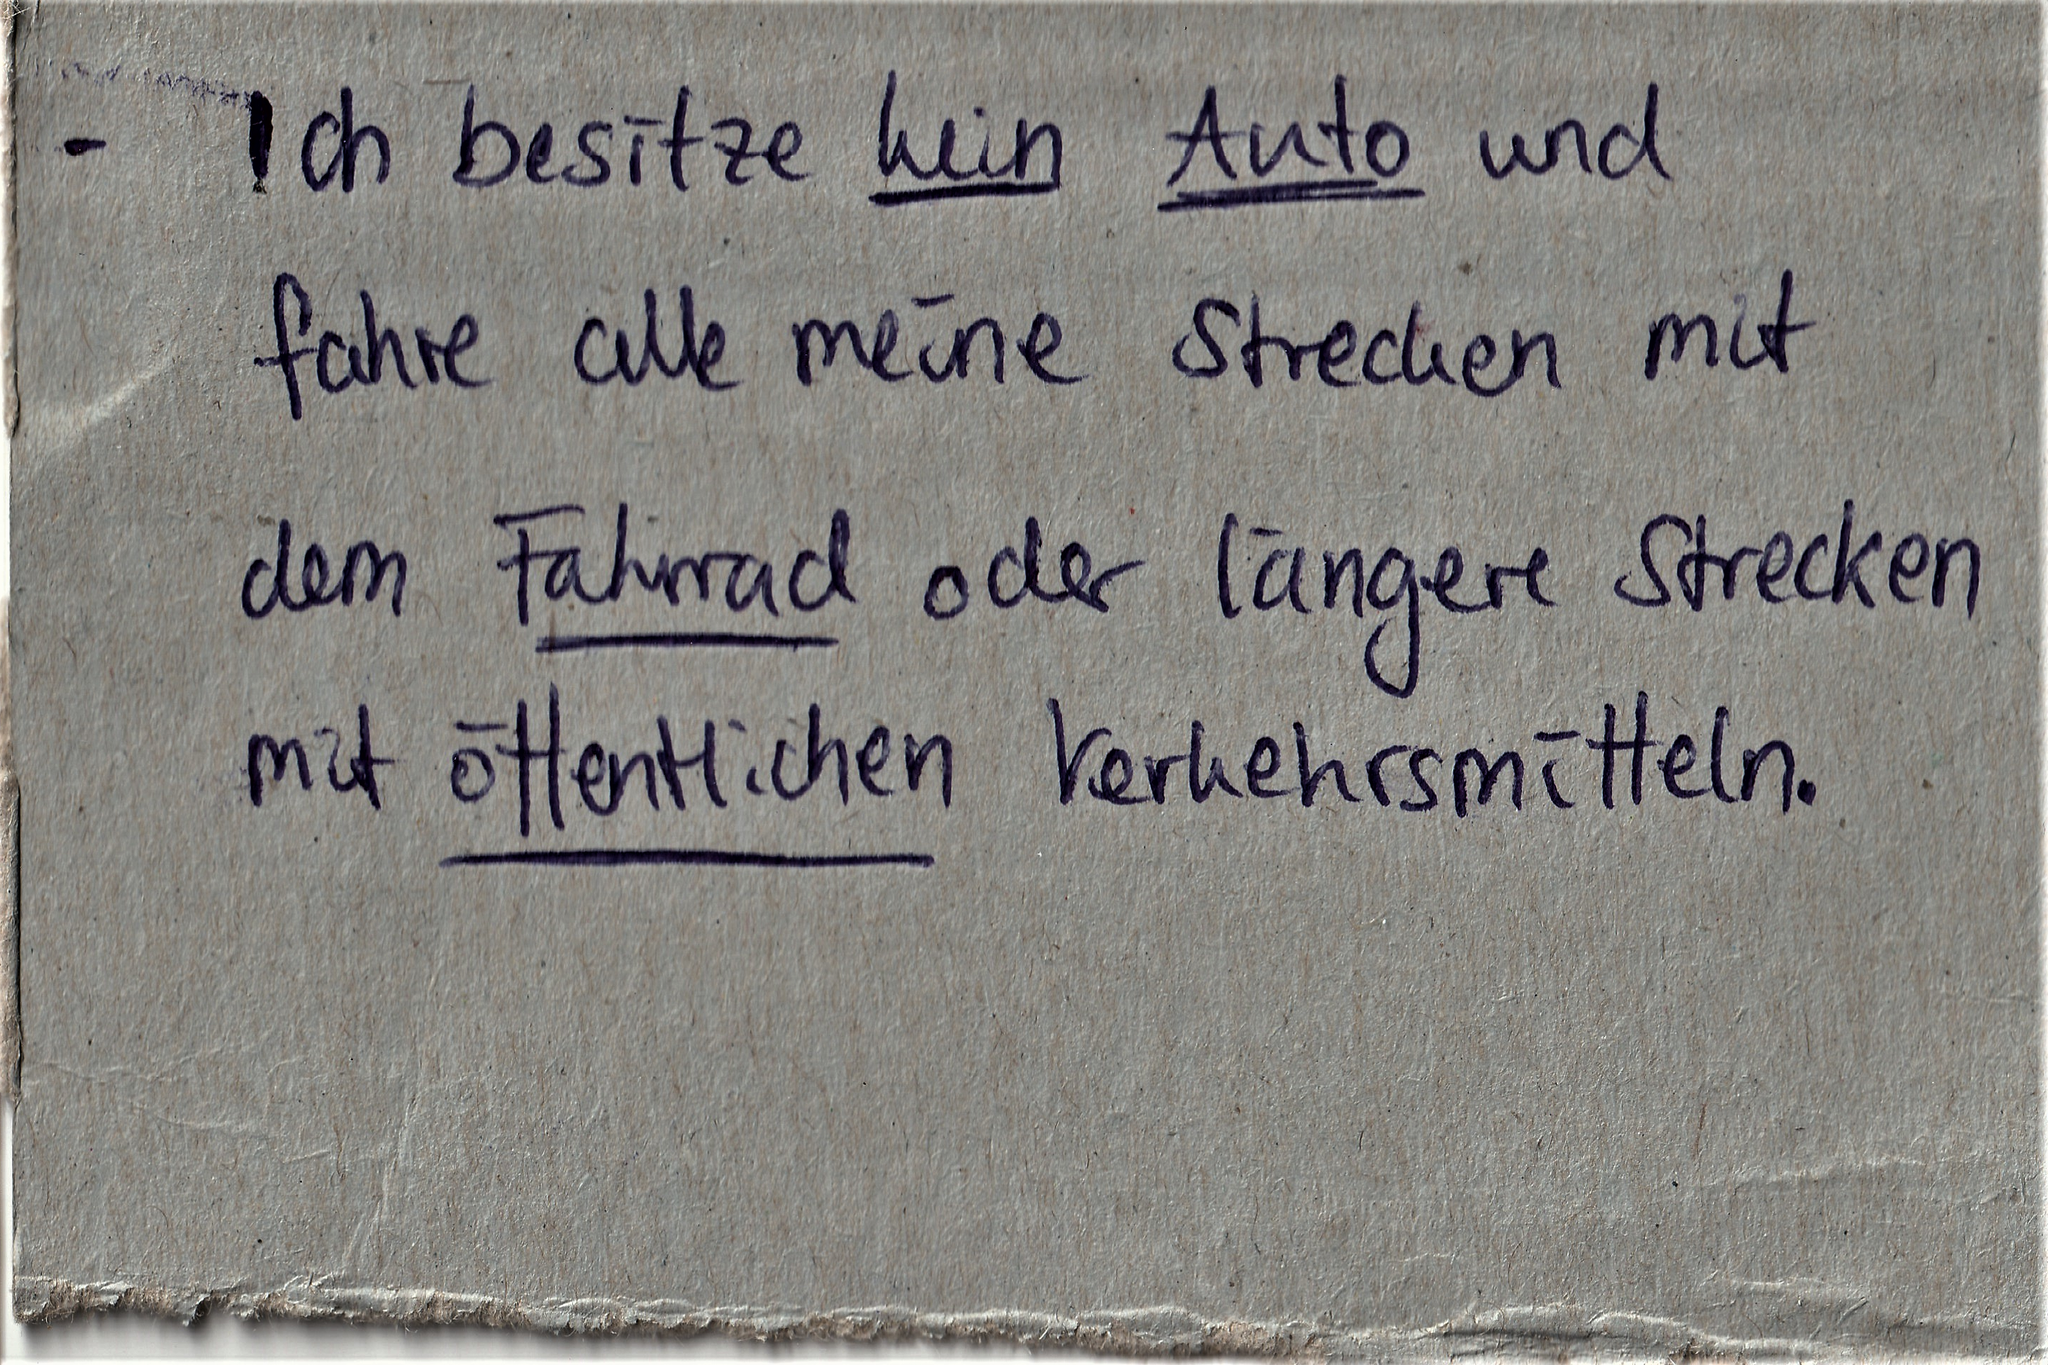 - Ich besitze kein Auto und
fahre alle meine Strecken mit
dem Fahrrad oder längere Strecken
mit öffentlichen Verkehrsmitteln.